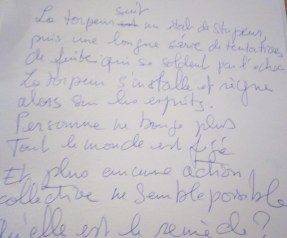 suit
La torpeur est un état de stupeur,
puis une longue série de tentatives
de fuites qui se soldent par l'échec
La torpeur s'installe et règne
alors sur les esprits.
Personne ne bouge plus
Tout le monde est figé
Et plus aucune action
collective ne semble possible
Qu'elle est le remède ?